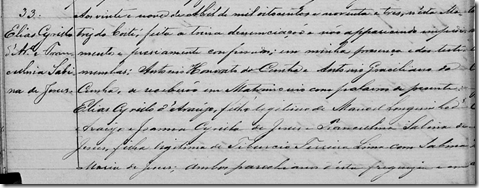 33.
Elias Cyrillo
d'Ar.º Rom
ualda Sabi
na de Jesus.
Aos vinte e nove de Abril de mil oitocentos e noventa e tres, nesta Ma
triz do Corte, feita a trina denunciação e nos apparecendo impedi
mento e previamente confessados; em minha presença e das teste
munhas: Antonio Honorato da Cunha e Antonio Graciliano da
Cunha, se receberam em Matrimonio com palavras de presente,
Elias Cyrillo d'Araujo, filho legitimo de Manoel Joaquim de
Araujo e Joanna Cyrillo de Jesus e Sabina de
Jesus, filha legitima de Tiburcio Ferreira Lima com Sabina
Maria de Jesus; ambos parochianos d'esta freguezia e em